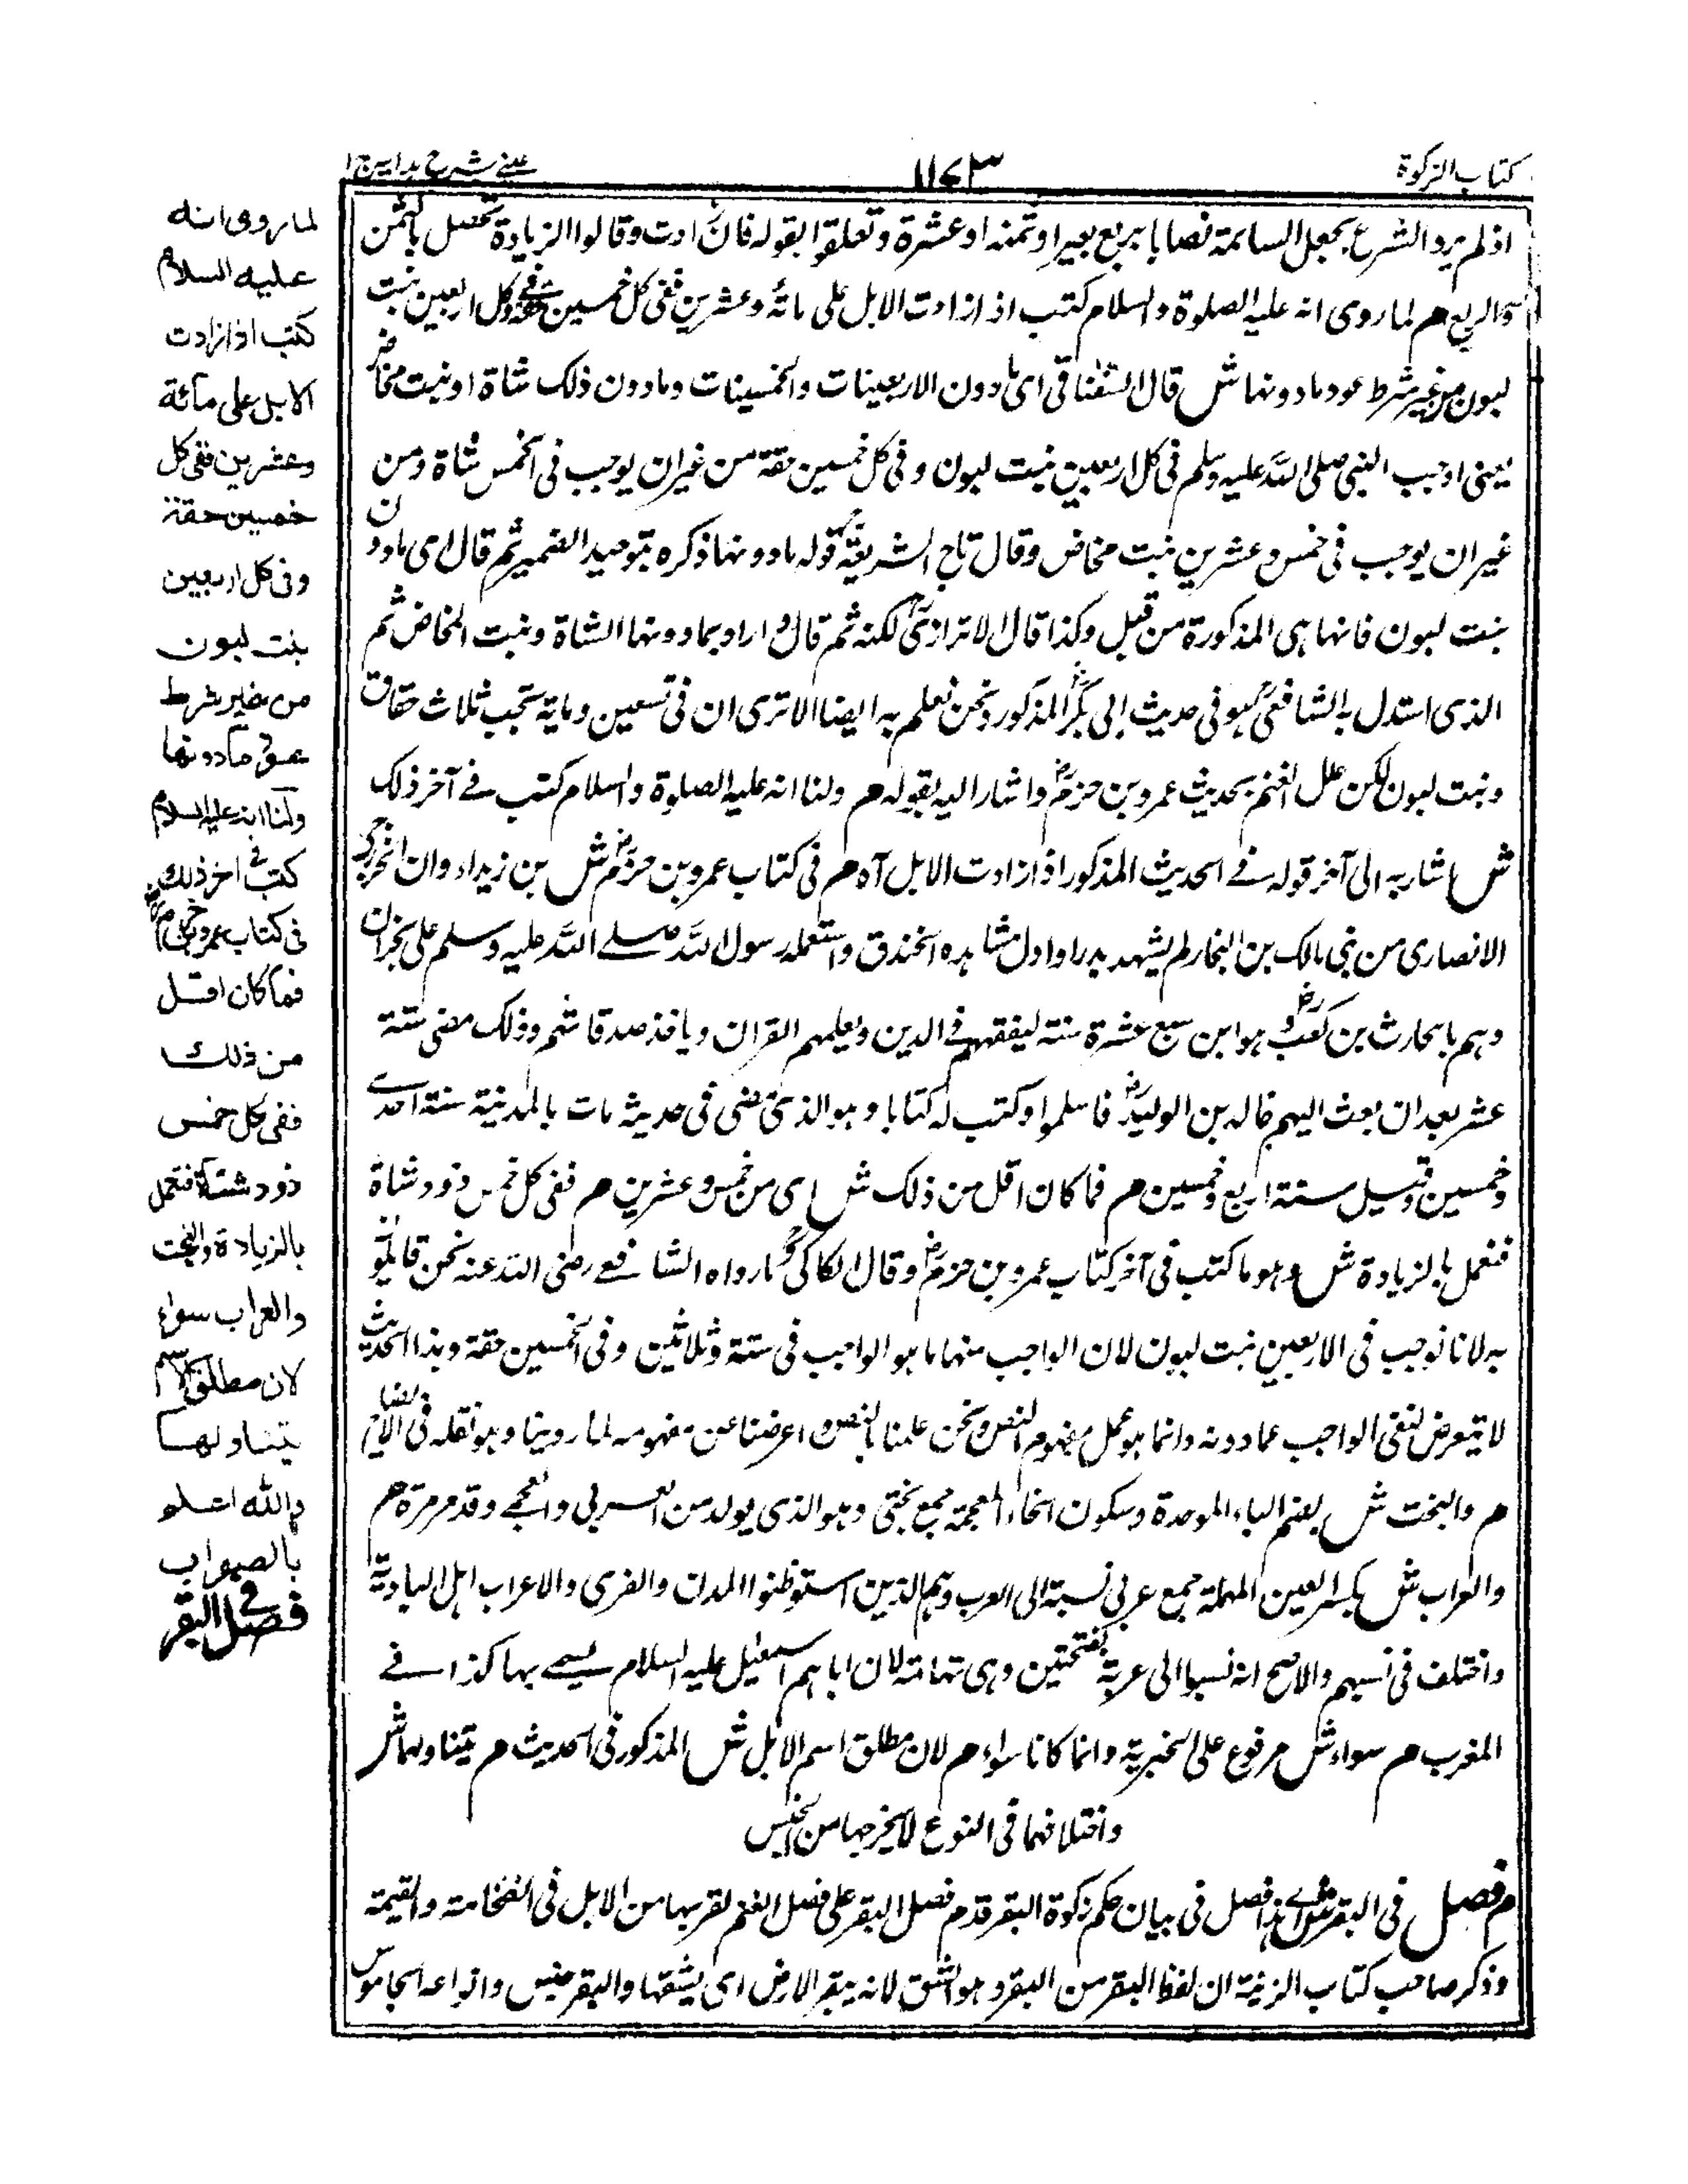 كتاب الزكوة
١١٧٣
عيني شرح هداية ج ١
اذ لم يرد الشرع بجعل السائمة نصابا بربع بعير او ثمنه او عشرة وتعلقوا بقوله فان زادت وقالوا الزيادة تحصل بالثمن
والربع م لما روى انه عليه الصلوة والسلام كتب اذا زادت الابل على مائة وعشرين ففى كل خمسين حقة وفى كل اربعين بنت
لبون من غير شرط عود ما دونها ش قال السغناقى اى ما دون الاربعينات والخمسينات وما دون ذلك شاة او بنت مخاض
يعنى اوجب النبى صلى الله عليه وسلم فى كل اربعين بنت لبون وفى كل خمسين حقة من غير ان يوجب فى الخمس شاة ومن
غير ان يوجب فى خمس وعشرين بنت مخاض وقال تاج الشريعة قوله ما دونها ذكره بتوحيد الضمير ثم قال اى ما دون
بنت لبون فانها هى المذكورة من قبل وكذا قال الاترازى لكنه ثم قال و اراد بما دونها الشاة وبنت المخاض ثم
الذى استدل به الشافعى هو فى حديث ابى بكر المذكور ونحن نعلم به ايضا الا ترى ان فى تسعين وماية تجب ثلاث حقاق
وبنت لبون لكن علل الغنم بحديث عمرو بن حزم واشار اليه بقوله م ولنا انه عليه الصلوة والسلام كتب فى آخر ذلك
ش اشار به الى آخر قوله فى الحديث المذكور اذا زادت الابل آه م فى كتاب عمرو بن حزم ش بن زيد الخزرجى
الانصارى من بنى مالك بن النجار لم يشهد بدرا واول مشاهده الخندق واستعمله رسول الله صلى الله عليه وسلم على نجران
وهم بالحارث بن كعب وهو ابن سبع عشرة سنة ليفقههم فى الدين ويعلمهم القران وياخذ صدقاتهم وذلك مضى ستة
عشر بعد ان بعث اليهم خالد بن الوليد فاسلموا وكتب له كتابا وهو الذى مضى فى حديثه مات بالمدينة سنة احدى
وخمسين وقيل سنة اربع وخمسين م فما كان اقل من ذلك ش اى من خمس وعشرين م ففى كل خمس ذود شاة
فنعمل بالزيادة ش وهو ما كتب فى آخر كتاب عمرو بن حزم وقال الكاكى ما رواه الشافعى رضى الله عنه نحن قائلون
به لانا نوجب فى الاربعين بنت لبون لان الواجب منها ما هو الواجب فى ستة وثلاثين وفى الخمسين حقة وهذا الحديث
لا يتعرض لنفى الواجب عما دونه وانما هو عمل بمفهوم النص ونحن عملنا بالنص واعرضنا عن مفهومه لما روينا وهو نقله فى الايضاح
م والبخت ش بضم الباء الموحدة وسكون الخاء المعجمة جمع بختى وهو الذى يولد من العربى والعجمى وقد مر مرة م
والعراب ش بكسر العين المهملة جمع عربى نسبة الى العرب وهم الذين استوطنوا المدن والقرى والاعراب اهل البادية
واختلف فى نسبهم والاصح انه نسبوا الى عربة بفتحتين وهى تهامة لان اباهم اسمعيل عليه السلام يسمى بها كذا فى
المغرب م سواء ش مرفوع على الخبرية وانما كانا سواء م لان مطلق اسم الابل ش المذكور فى الحديث م يتناولهما ش
واختلافهما فى النوع لا يخرجها من الجنس
م فصل فى البقر ش اى هذا فصل فى بيان حكم زكوة البقر قدم فصل البقر على فصل الغنم لقربها من الابل فى الضخامة والقيمة
وذكر صاحب كتاب الزينة ان لفظ البقر من البقر وهو الشق لانه يبقر الارض اى يشقها والبقر جنس وانواعه الجاموس
لما روى انه
عليه السلام
كتب اذا زادت
الابل على مائة
وعشرين ففى كل
خمسين حقة
وفى كل اربعين
بنت لبون
من غير شرط
عود ما دونها
ولنا انه عليه السلام
كتب فى اخر ذلك
فى كتاب عمرو بن حزم
فما كان اقل
من ذلك
ففى كل خمس
ذود شاة فنعمل
بالزيادة والبخت
والعراب سواء
لان مطلق الاسم
يتناولهما
والله اعلم
بالصواب
فصل فى البقر